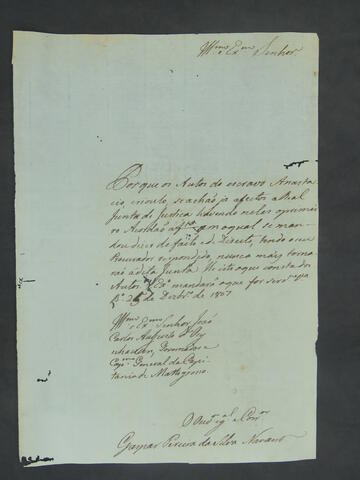 Illmo e Exmo Senhor
Porque os Autos do escravo Anasta-
cio, crioulo, se achão já afectos a Real
Junta de Justiça havendo nelles o primei-
ro Acordão a f com a qual se man-
dou dizer de facto e de Direito, tendo o seu
Procurador respondido, nunca mais torna-
rão a dita Junta. He isto o que consta dos
Autos Exa mandará o que for servido
de Dezbro de 1807
Illmo e Exmo Senhor José
Carlos Augusto d'Oy-
nhausen, Governador e
Capm General da Capi-
tania de Mattogrosso.
O Ouvor
Gaspar Pereira da Silva Navarro